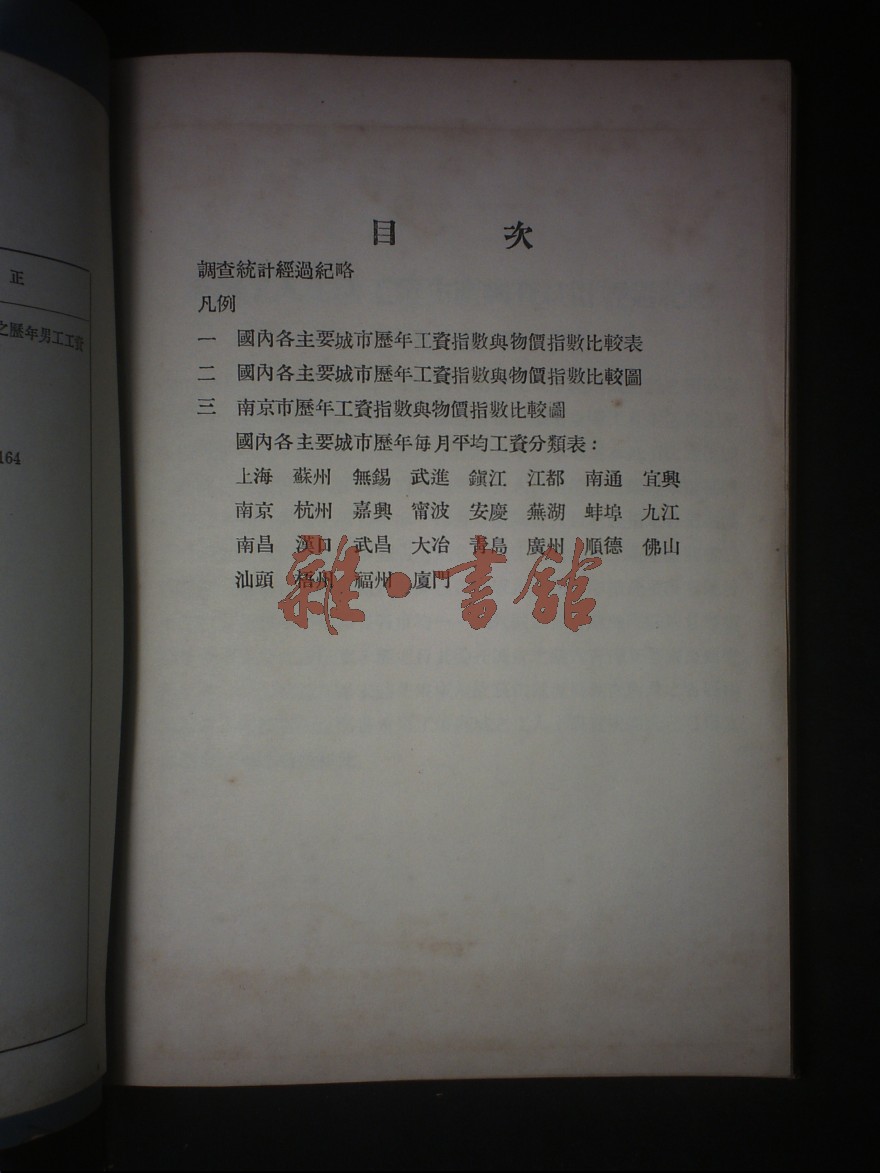 目 次
調查統計經過紀略
凡例
一 國內各主要城市歷年工資指數與物價指數比較表
二 國內各主要城市歷年工資指數與物價指數比較圖
三 南京市歷年工資指數與物價指數比較圖
國內各主要城市歷年每月平均工資分類表:
上海 蘇州 無錫 武進 鎭江 江都 南通 宜興
南京 杭州 嘉興 甯波 安慶 蕪湖 蚌埠 九江
南昌 漢口 武昌 大冶 靑島 廣州 順德 佛山
汕頭 梧州 福州 廈門
雜·書館
正
之歷年男工工資
164